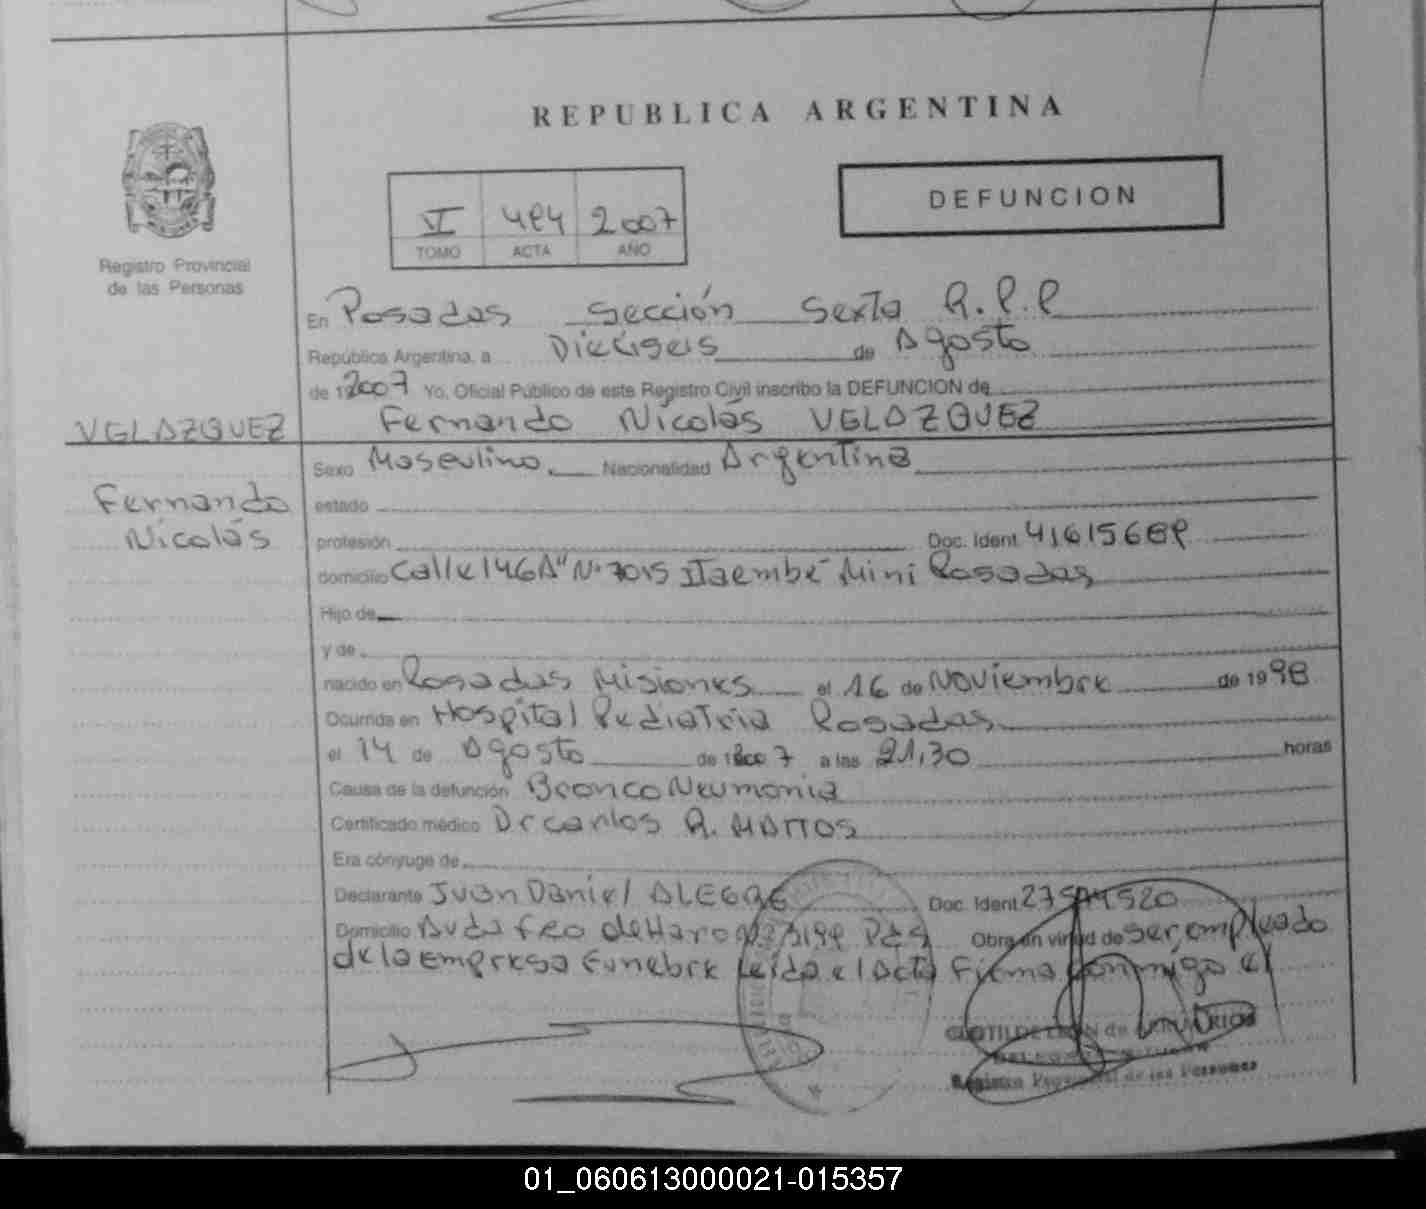 REPUBLICA ARGENTINA
VI 484 2007
TOMO ACTA AÑO
DEFUNCION
Registro Provincial
de las Personas
En Posadas Sección Sexta R.P.P
República Argentina, a Dieciseis de Agosto
de 2007 Yo, Oficial Público de este Registro Civil inscribo la DEFUNCION de
VELAZQUEZ Fernando Nicolás VELAZQUEZ
Sexo Masculino. Nacionalidad Argentina
Fernando estado
Nicolás profesión Doc. Ident
domicilio Calle 146 A" Nº 7015 Itaembé Mini Posadas
Hijo de
y de
nacido en Posadas Misiones el 16 de Noviembre de 1998
Ocurrida en Hospital Pediatria Posadas
el 14 de Agosto de 2007 a las 21,30 horas
Causa de la defunción BroncoNeumonia
Certificado médico Dr Carlos R. MATTOS
Era cónyuge de
Declarante Juan Daniel ALEGRE Doc. Ident
Domicilio Avda Fco de Haro Obra en virtud de ser empleado
de la Empresa Funebre Leida el Acta Firma conmigo el
CLOTILDE de
Registro Provincial de las Personas
01_060613000021-015357